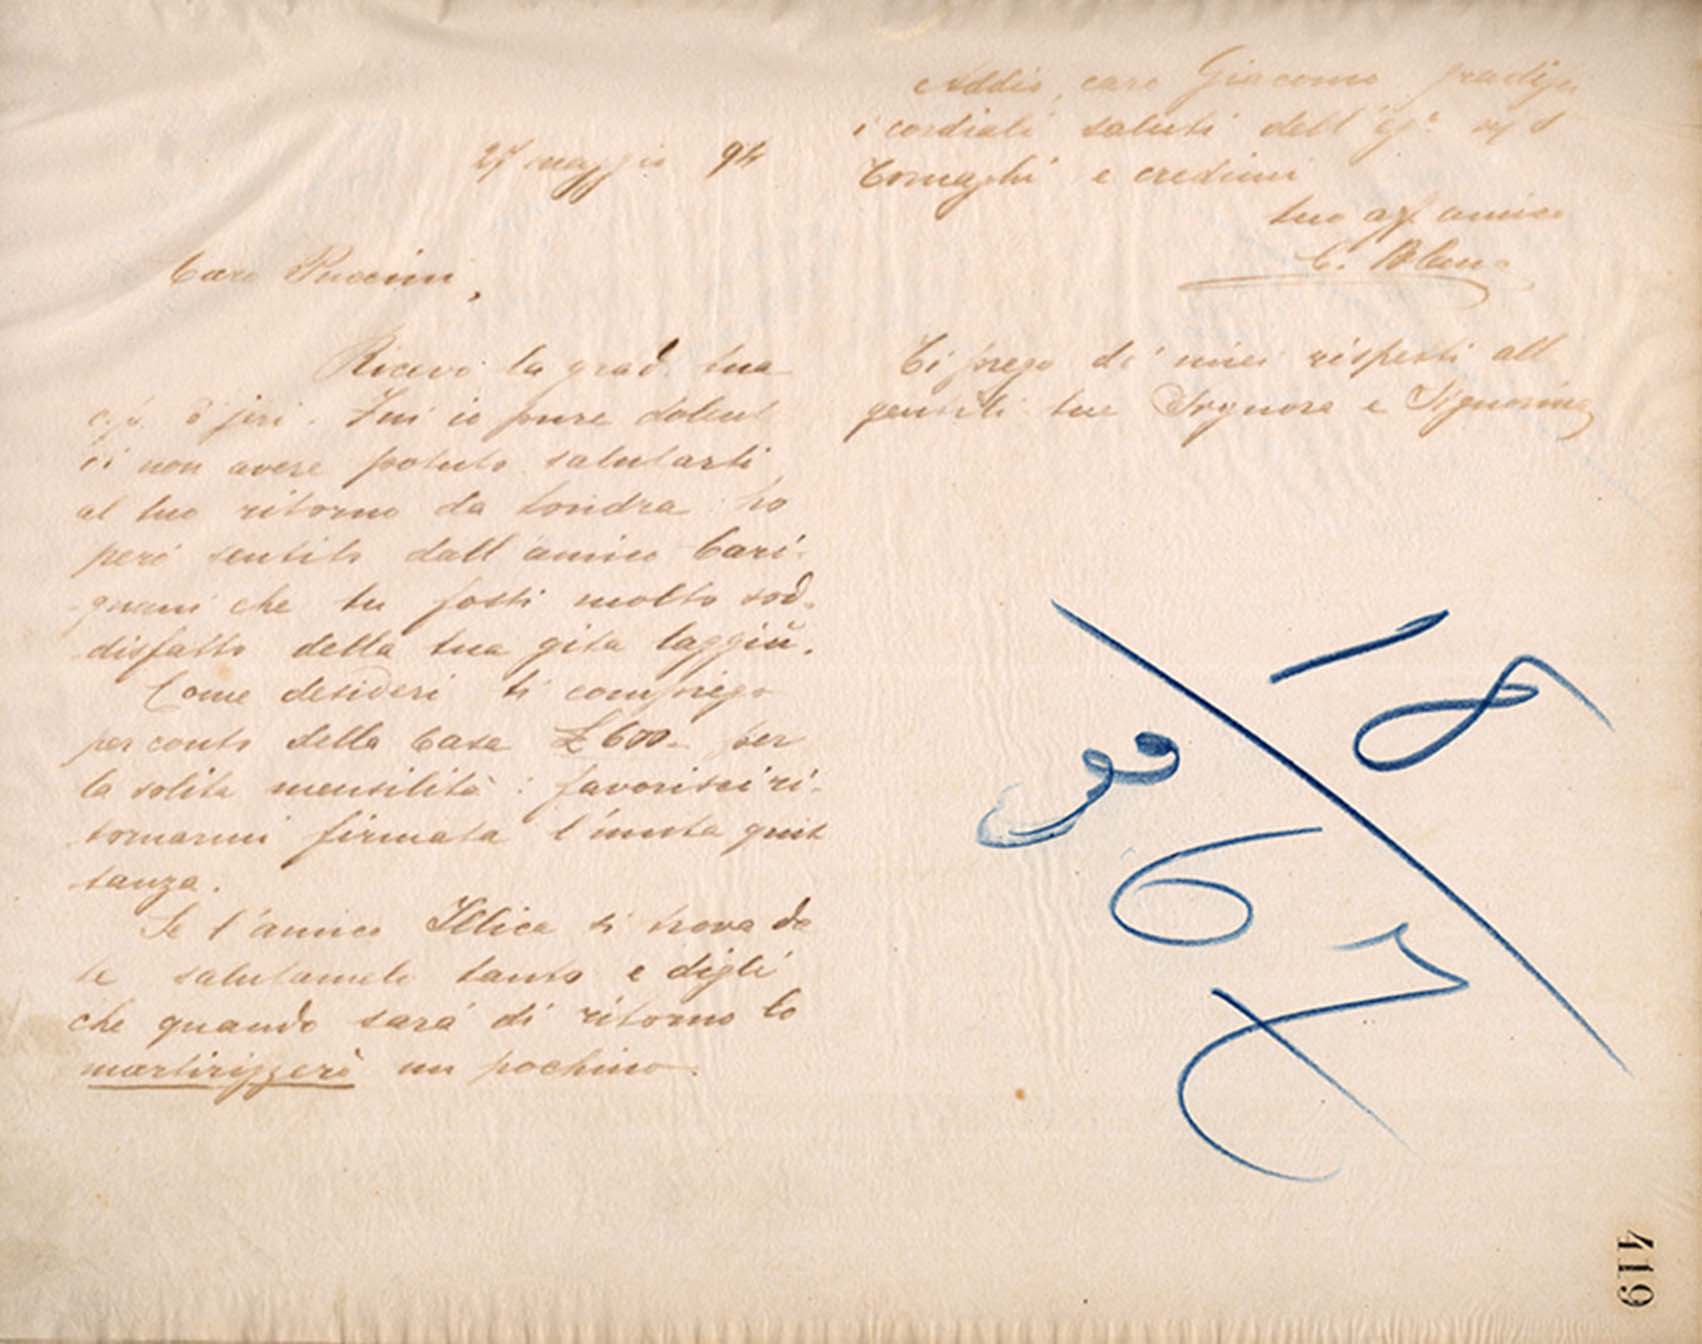 27 maggio 94
Caro Puccini,
Ricevo la grad. tua
c.p. d'jeri. Fui io pure dolent
di non avere potuto salutarti
al tuo ritorno da Londra ho
però sentito dall'amico Cari-
gnani che tu fosti molto sod-
disfatto della tua gita laggiù.
Come desideri ti compiego
per conto della Casa £ 600.- per
la solita mensilità: favorisci ri-
tornarmi firmata l'unita quit
tanza.
Se l'amico Illica si trova da
te salutamelo tanto e digli
che quando sarà di ritorno lo
martirizzerò un pochino.
Addio, caro Giacomo gradisci
i cordiali saluti dell'
Tornaghi e credimi
tuo aff amico
C. Blanc
Ti prego di miei rispetti all
gentili tue Signora e Signorina
18
67
419